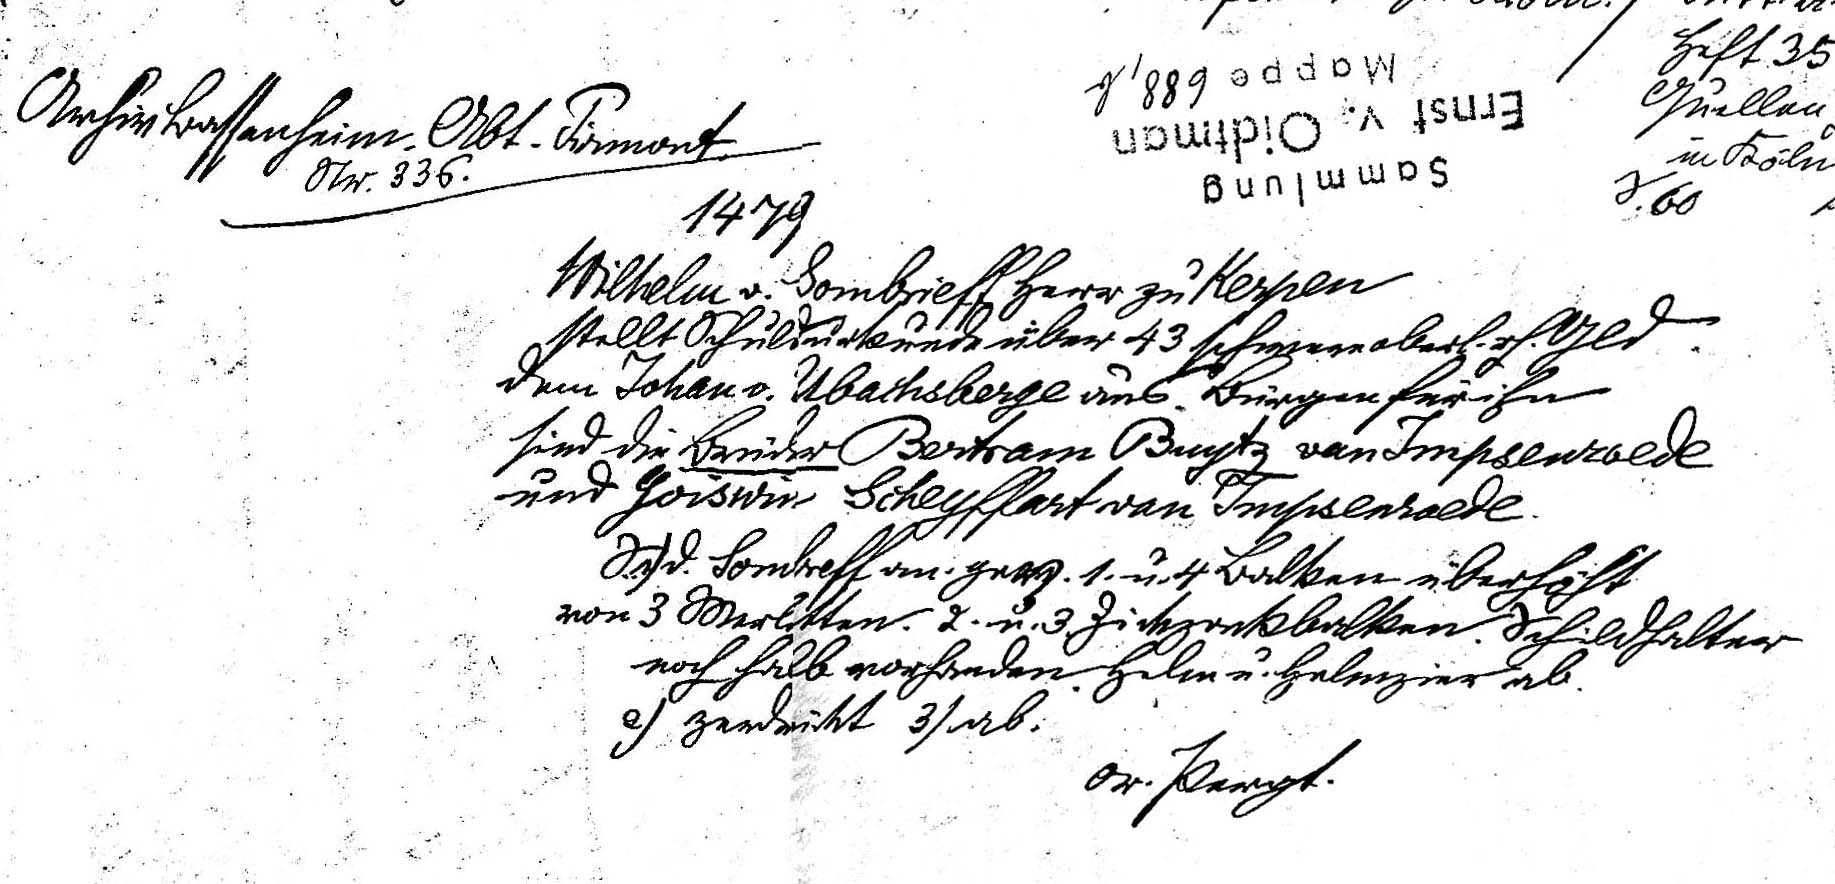 Heft 35
Archiv Bassenheim. Abt. Pirmont.
Nr. 336.
Quellen
in Köln
S. 60
Sammlung
Ernst v. Oidtman
Mappe 688,
1479
Wilhelm v. Sombrieff Herr zu Kerpen
stellt Schuldurkunde über 43 schwere oberl. rh. Gld
dem Johan v. Ubachsberge aus. Bürgen für ihn
sind die Brüder Bertram Buytz van Impsenroede
und Goiswin Scheyffart van Impsenroede.
S. d. Sombreff an. 1. u. 4 Balken überhöht
von 3 Merletten. 2. u. 3. Zickzackbalken. Schildhalter
noch halb vorhanden. Helm u. Helmzier ab.
2) zerdrückt 3) ab.
Or. Pergt.